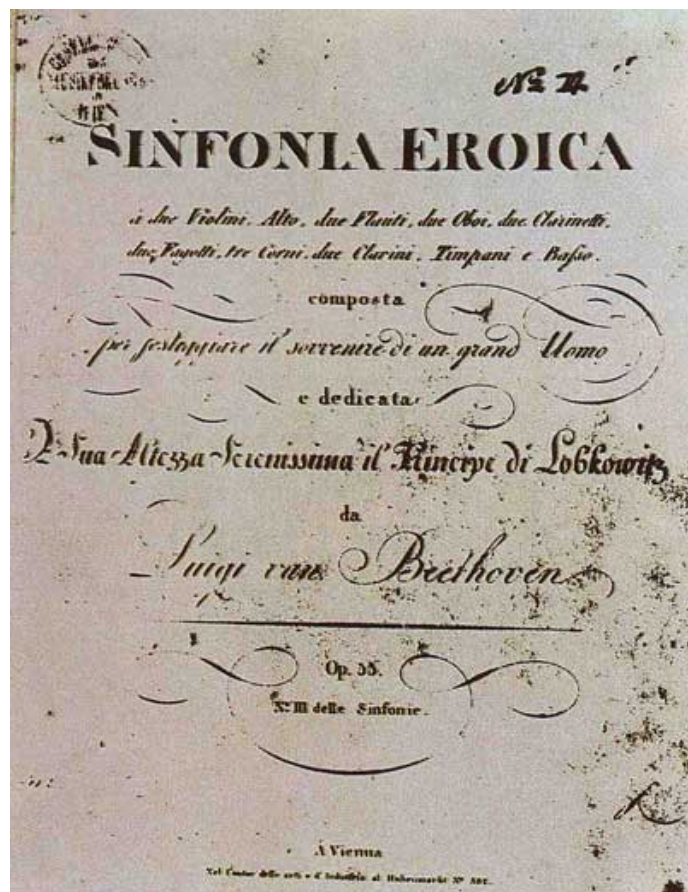 GESELLSCHAFT
DER
MUSIKFREUNDE
IN
WIEN
SINFONIA EROICA
à due Violini, Alto, due Flauti, due Oboi, due Clarinetti,
due Fagotti, tre Corni, due Clarini, Timpani e Basso.
composta
per festeggiare il sovvenire di un grand Uomo
e dedicata
A Sua Altezza Serenissima il Principe di Lobkowitz
da
Luigi van Beethoven
Op. 55.
No III delle Sinfonie.
À Vienna
Nel Contor delle arti e d'Industria al Hohenmarkt No